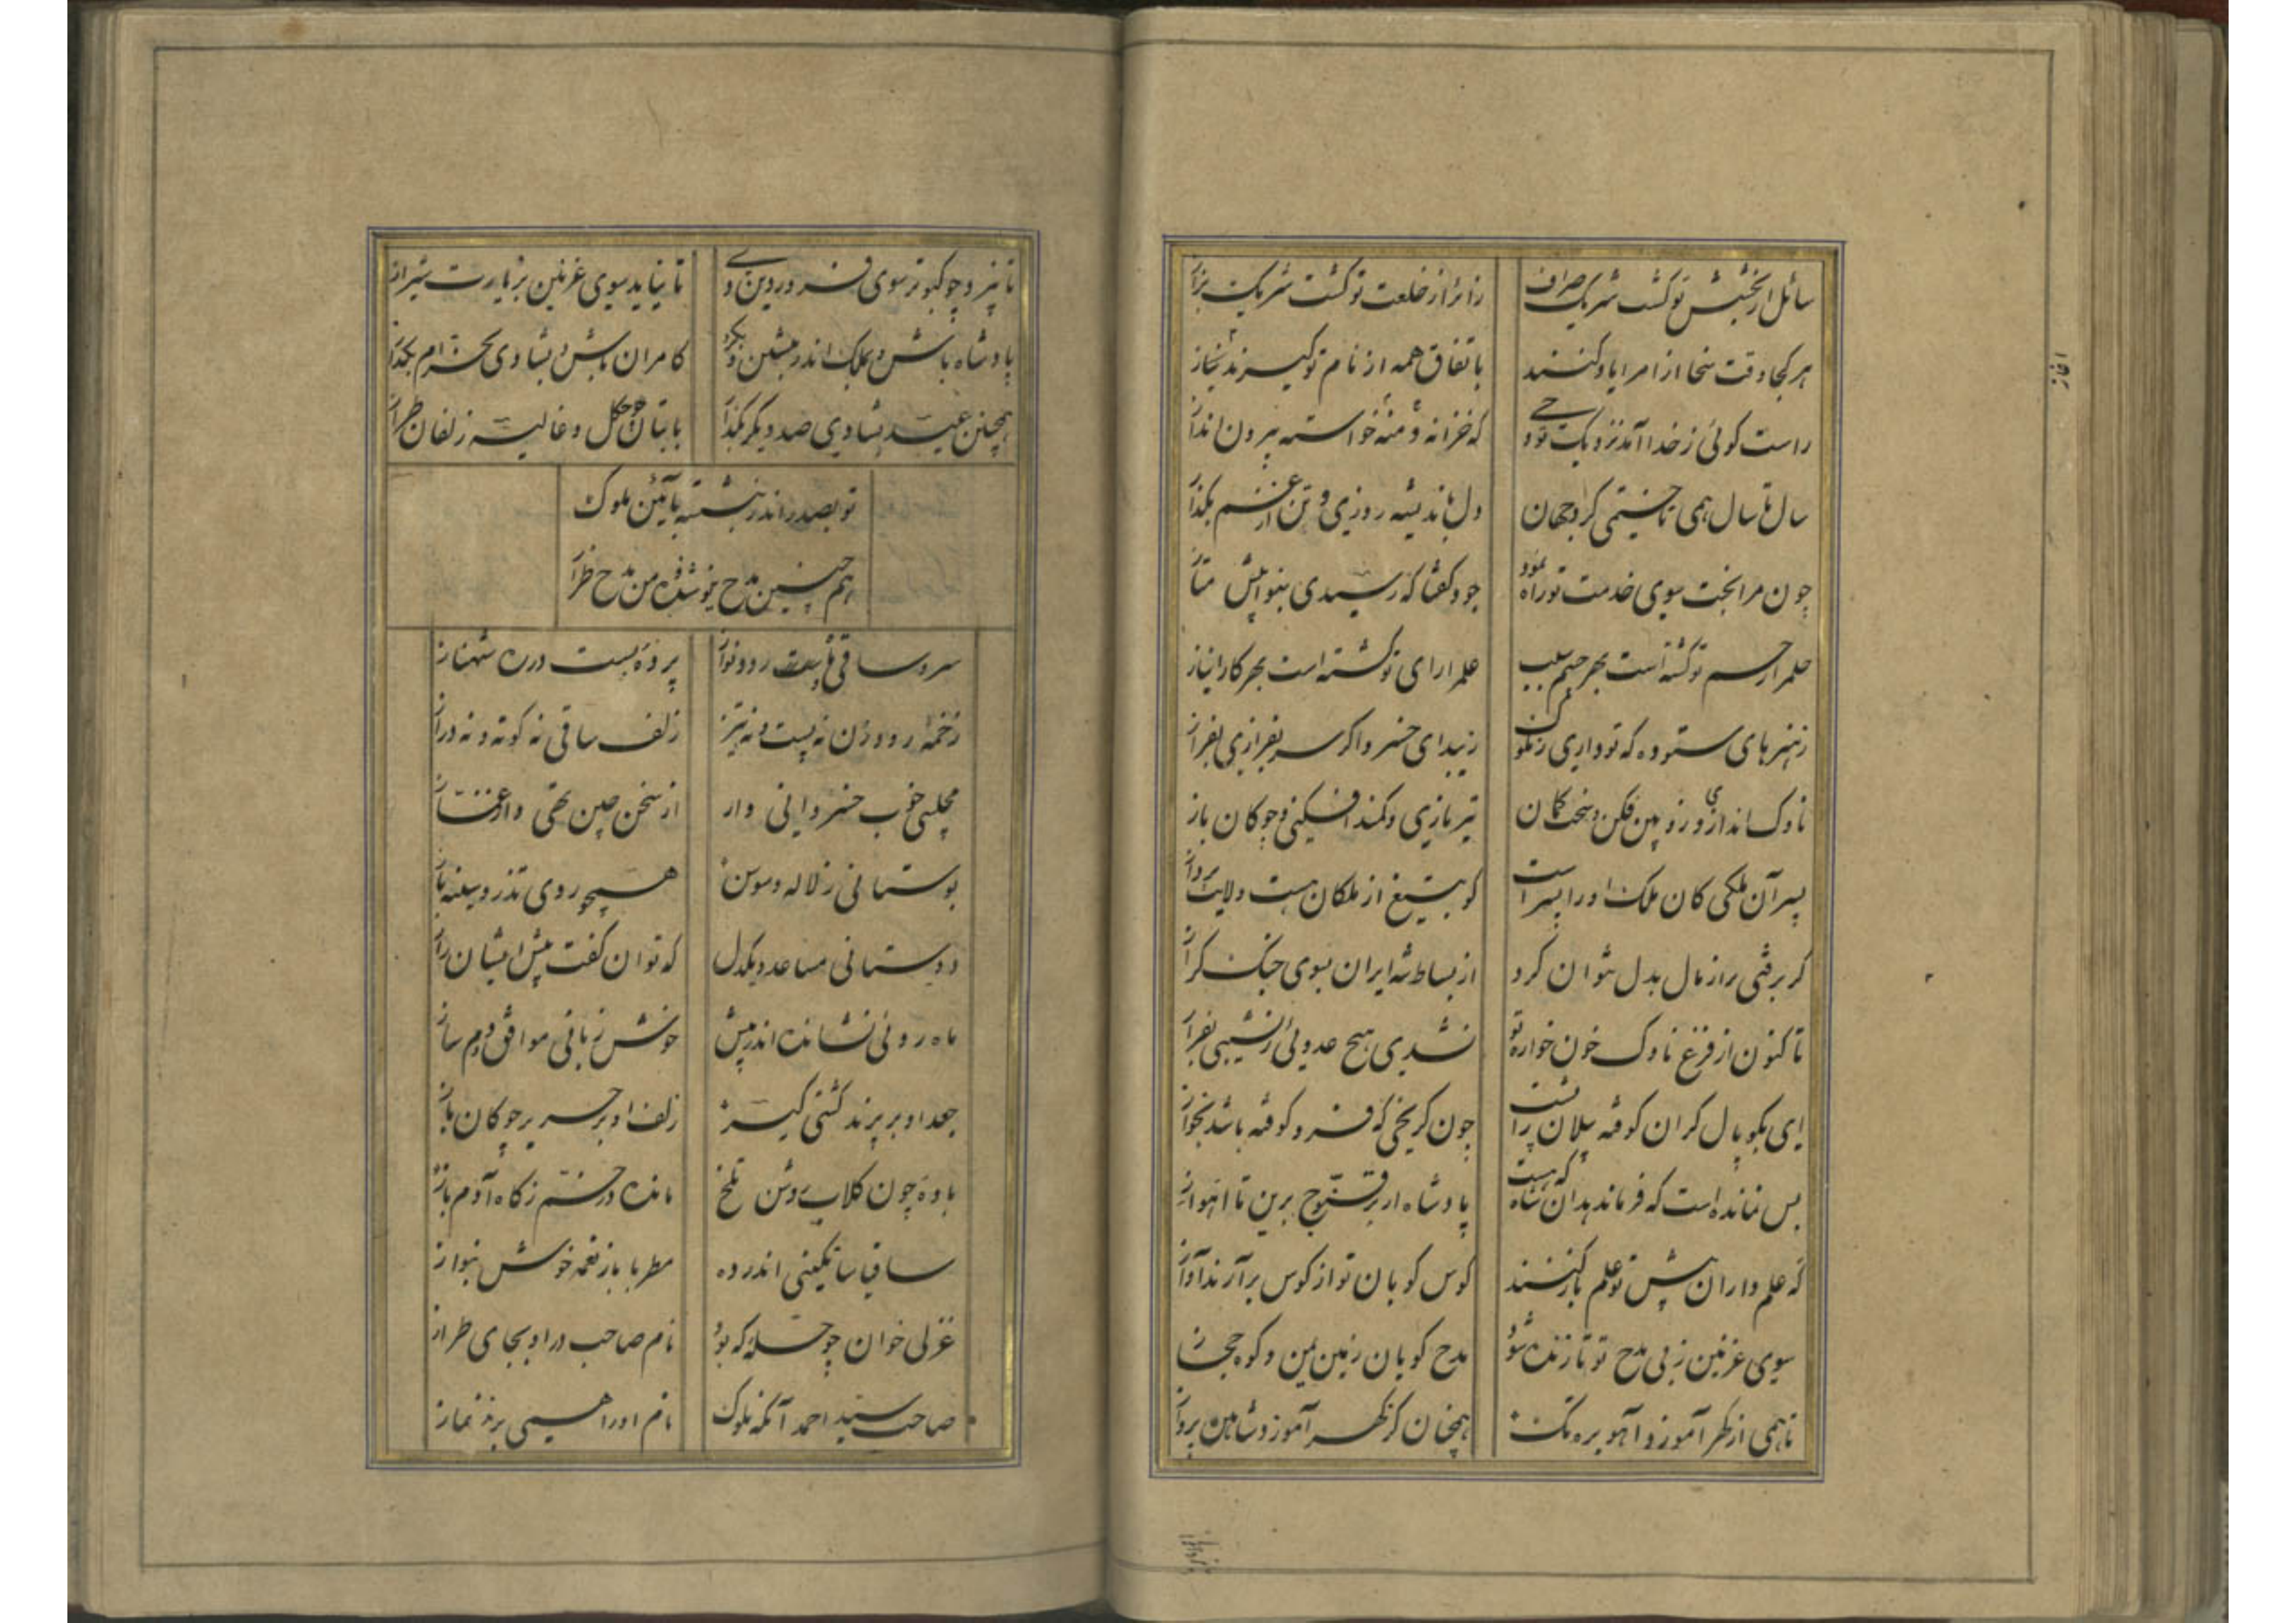 سائل از بخشش تو گشت شریک صراف
زائر از خلعت تو گشت شریک بزاز
هر کجا وقت سخا از امرا یاد کنند
باتفاق همه از نام تو گیرند آغاز
راست گوئی ز خدا آمد نزدیک تو وحی
که خزانه و منه خواسته بیرون انداز
سال تا سال همی تاختمی گرد جهان
دل باندیشه روزی و تن از غم بگداز
چون مرا بخت سوی خدمت تو راه نمود
جود گفتا که رسیدی بنوا بیش متاز
حلم را رحم تو گشته است بهر خشم سبب
علم را رای تو گشته است بهر کار انباز
ز هنرهای ستوده که تو داری ز ملوک
زیبد ای خسرو اگر سر بفرازی بفراز
ناوک اندازی و زوبین فکن و سخت کمان
تیر یازی و کمند افکنی و چوکان باز
پسر آن ملکی کان ملک او را پسر است
کو بتیغ از ملکان هست ولایت پرداز
گر برفتی براز مال بدل نتوان کرد
از بساط شه ایران بسوی جنگ گراز
تا کنون از فزع ناوک خون خواره تو
نشدی هیچ عدوئی ز نشیبی بفراز
ای بکوپال گران کوفته پیلان را پشت
چون کرنجی که فرو کوفته باشد بجواز
بس نمانده است که فرماندهد آن شاه که هست
پادشاه از بر قنوج برین تا اهواز
که علم داران پیش تو علم باز کنند
کوس کوبان تو از کوس برآرند آواز
سوی غزنین ز پی مدح تو تازنده شود
مدح گویان زمین یمن و کوه حجاز
تا همی از گهر آموزد آهو بره تک
همچنان کز گهر آموزد شاهین پرواز
تا نپرد چو کبوتر سوی فروردین دی
تا نیاید سوی غزنین بزیارت شیراز
پادشاه باش و بملک اندر بنشین و بگرد
کامران باش و بشادی بخرام بگراز
همچنین عید بشادی صد دیگر بگذار
با بتان چگل و غالیه زلفان طراز
تو بصدر اندر بنشسته بآئین ملوک
هم چنین مدح نیوشنده من مدح طراز
سرو ساقی و ماه رود نواز
پرده بسته در ره شهناز
زخمه رودزن نه پست و نه تیز
زلف ساقی نه کوته و نه دراز
مجلسی خوب خسروانی وار
از سخن چین تهی و از غماز
بوستانی ز لاله و سوسن
همچو روی تذرو و سینه باز
دوستانی مساعد و یکدل
که توان گفت پیش ایشان راز
ماه روئی نشانده اندر پیش
خوش زبانی موافق و دم ساز
جعد او بر پرند کشتی گیر
زلف او بر حریر چوکان باز
باده چون گلاب روشن تلخ
مانده در خم ز گاه آدم باز
ساقیا ساتکینی اندر ده
مطربا باز نغمه خوش بنواز
غزلی خوان چو حله که بود
نام صاحب در او بجای طراز
صاحب سید احمد آنکه ملوک
نام او را همی برند نماز